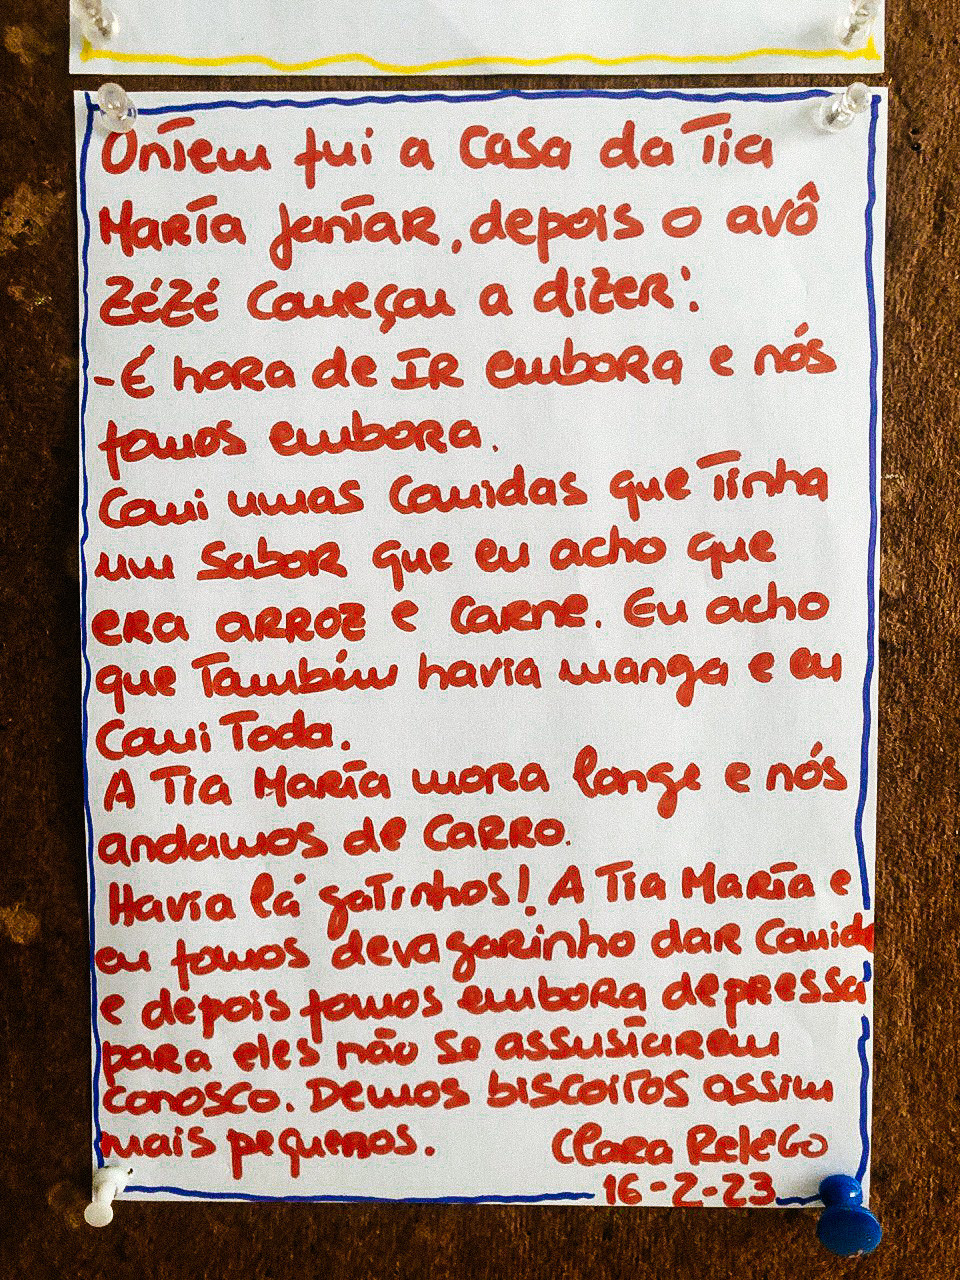 Ontem fui a casa da Tia
Maria jantar, depois o avô
Zézé começou a dizer:
-É hora de IR embora e nós
fomos embora.
Comi umas comidas que Tinha
um sabor que eu acho que
era arroz e carne. Eu acho
que Também havia manga e eu
comi Toda.
A Tia Maria mora longe e nós
andamos de carro.
Havia lá gatinhos! A Tia Maria e
eu fomos devagarinho dar comida
e depois fomos embora depressa
para eles não se assustarem
conosco. Demos biscoitos assim
mais pequenos. Clara Relego
16-2-23